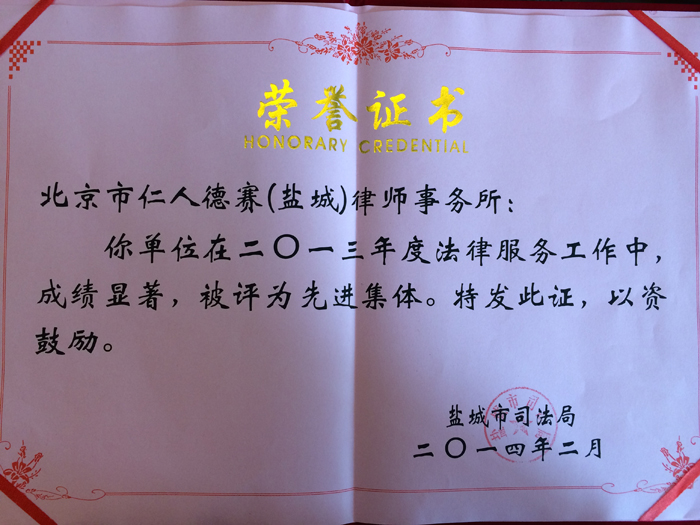 荣誉证书
HONORARY CREDENTIAL
北京市仁人德赛(盐城)律师事务所：
你单位在二〇一三年度法律服务工作中，
成绩显著，被评为先进集体。特发此证，以资
鼓励。
盐城市司法局
二〇一四年二月